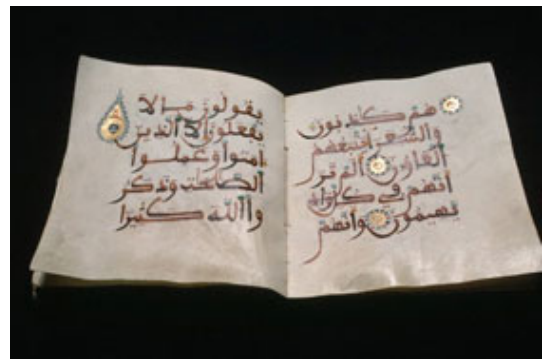 هم كٰذبون
والشعرا يتبعهم
الغاون الم تر
انهم في كل واد
يهيمون وانهم
يقولون ما لا
يفعلون الا الذين
امنوا وعملوا
الصٰلحٰت وذكر
وا الله كثيرا